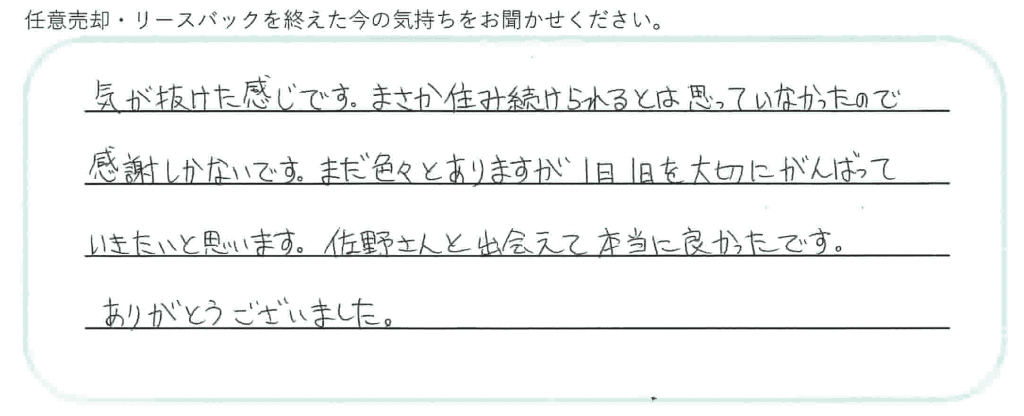 任意売却・リースバックを終えた今の気持ちをお聞かせください。
気が抜けた感じです。まさか住み続けられるとは思っていなかったので
感謝しかないです。まだ色々とありますが1日1日を大切にがんばって
いきたいと思います。佐野さんと出会えて本当に良かったです。
ありがとうございました。